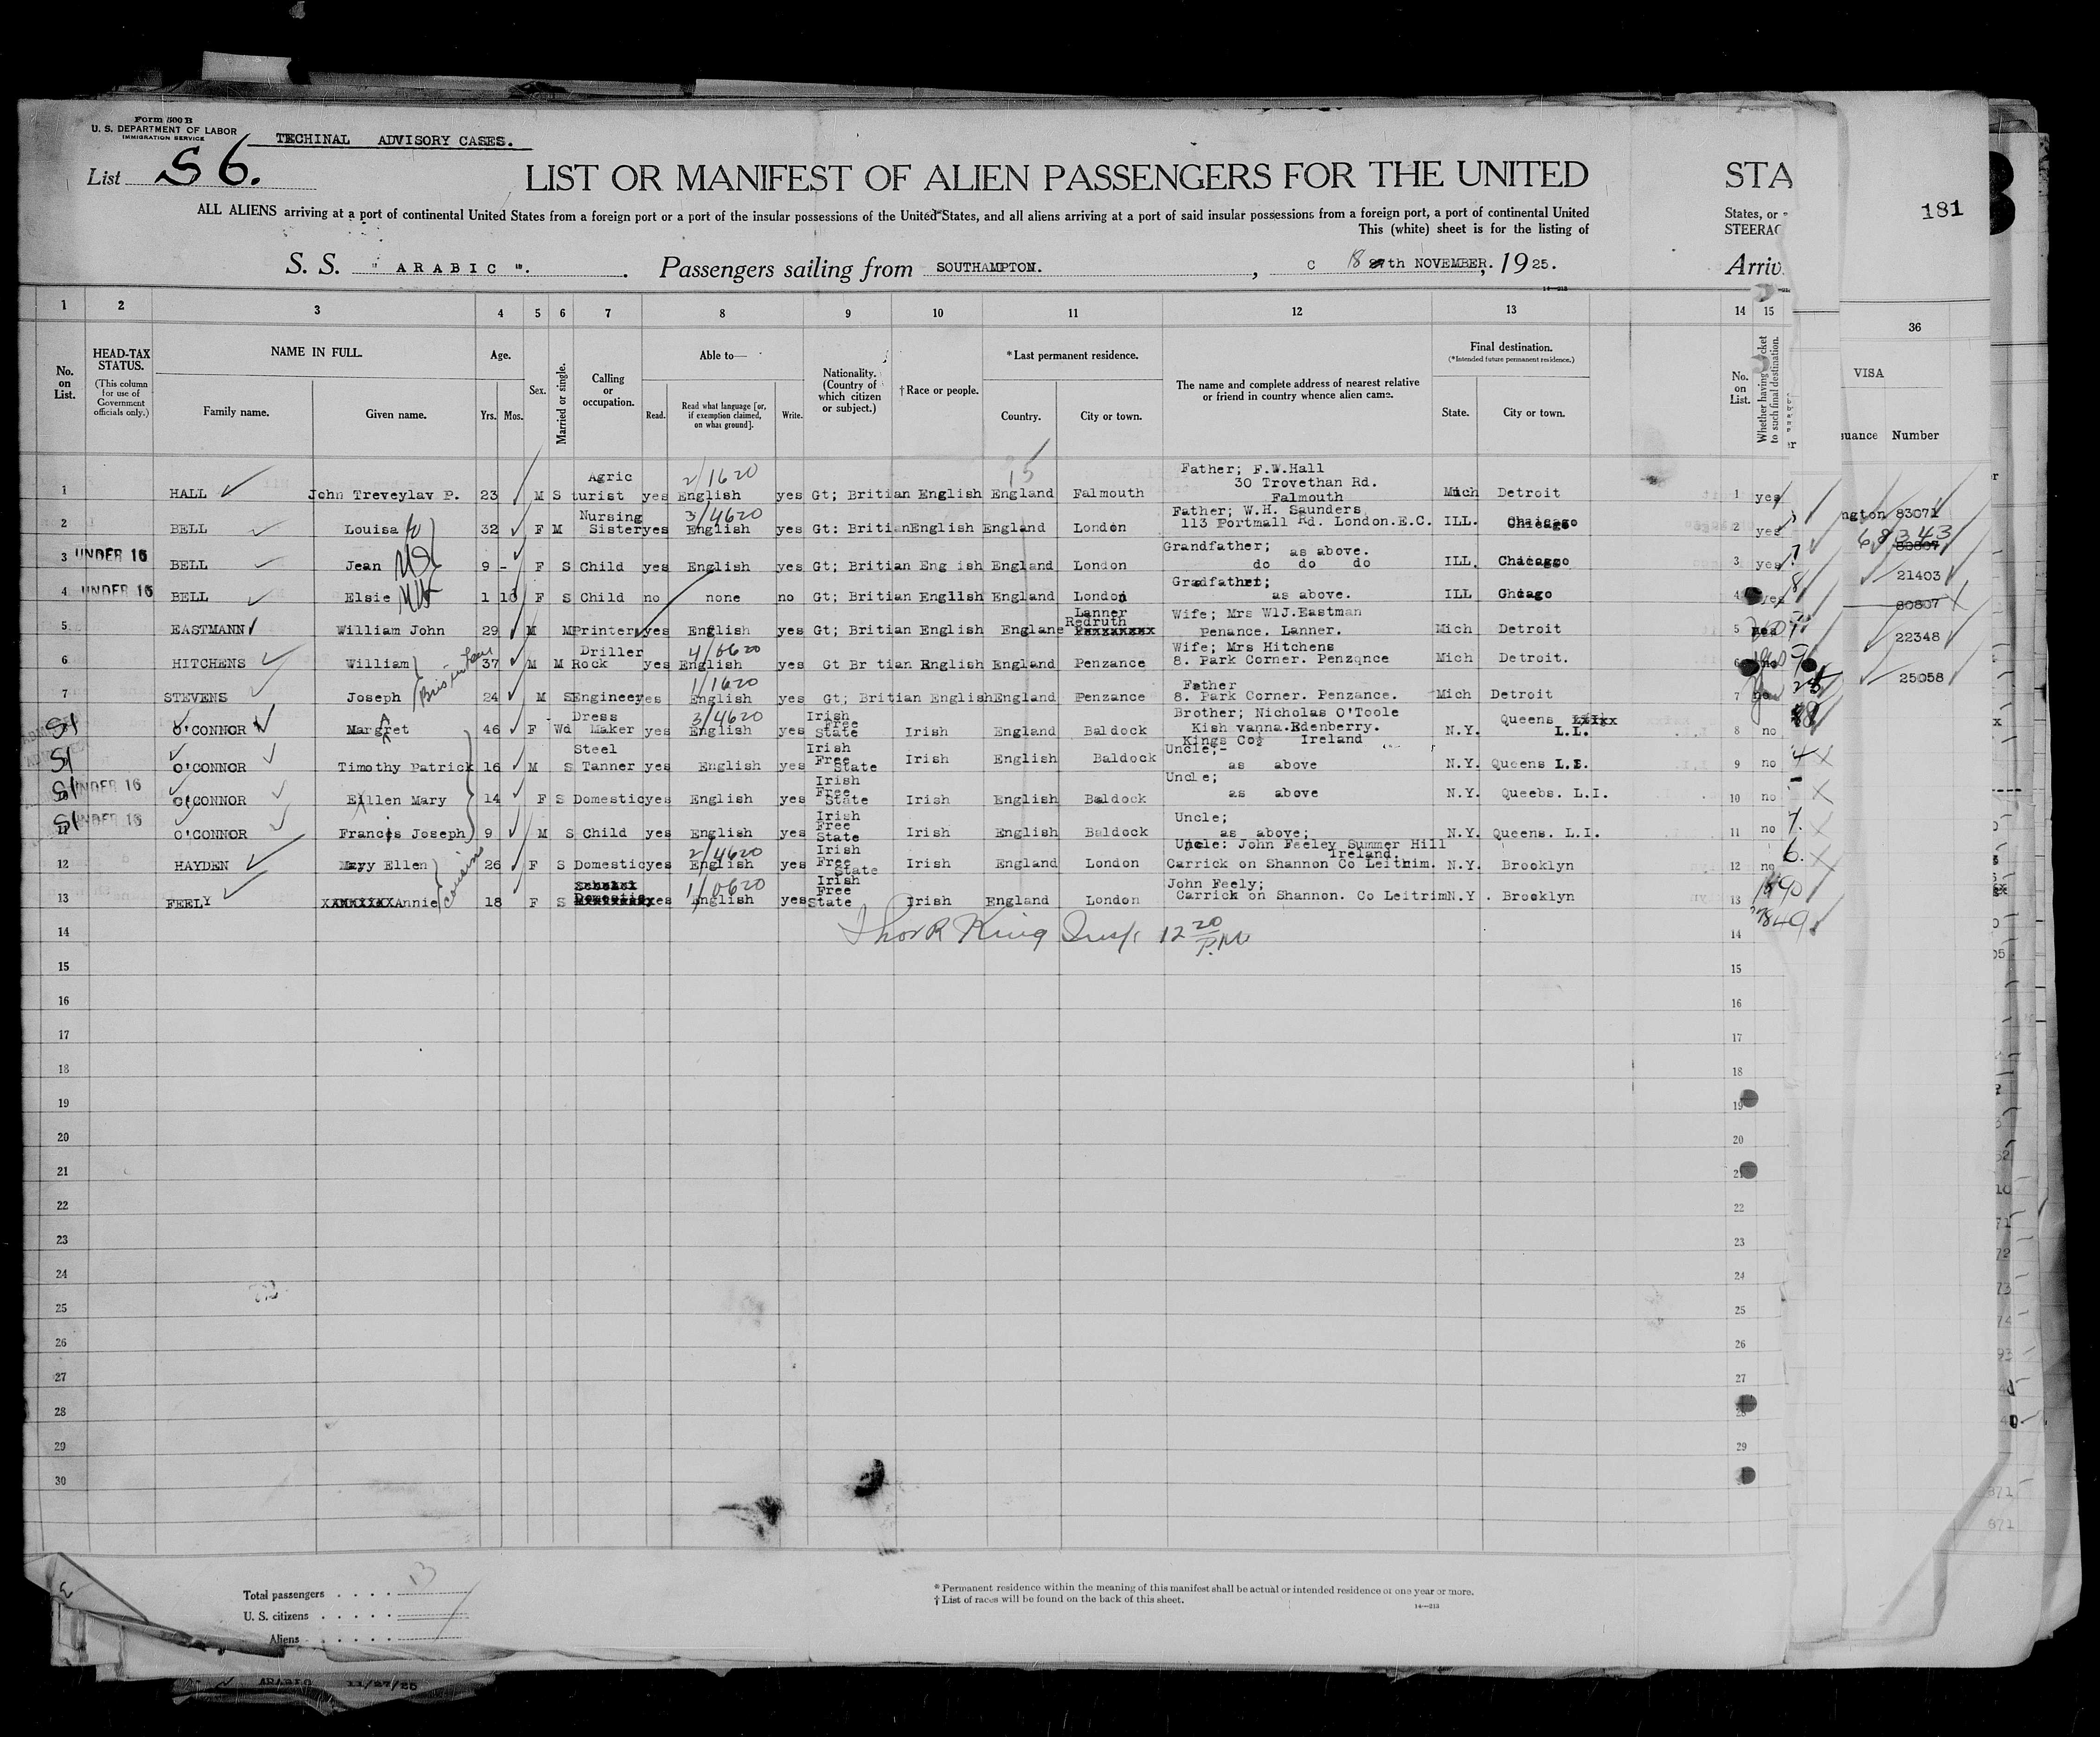 Form 500 B
U. S. DEPARTMENT OF LABOR
IMMIGRATION SERVICE
TECHINAL ADVISORY CASES.
List S 6.
LIST OR MANIFEST OF ALIEN PASSENGERS FOR THE UNITED STA
ALL ALIENS arriving at a port of continental United States from a foreign port or a port of the insular possessions of the United States, and all aliens arriving at a port of said insular possessions from a foreign port, a port of continental United States, or
This (white) sheet is for the listing of STEERAG
181
S. S. " ARABIC ". Passengers sailing from SOUTHAMPTON. , C 18 th NOVEMBER, 1925. Arriv
1 2 3 4 5 6 7 8 9 10 11 12 13 14 15 36
No. on List.
HEAD-TAX STATUS.
(This column for use of Government officials only.)
NAME IN FULL.
Family name. Given name.
Age.
Yrs. Mos.
Sex.
Married or single.
Calling or occupation.
Able to—
Read. Read what language [or, if exemption claimed, on what ground]. Write.
Nationality. (Country of which citizen or subject.)
† Race or people.
* Last permanent residence.
Country. City or town.
The name and complete address of nearest relative or friend in country whence alien came.
Final destination.
(*Intended future permanent residence.)
State. City or town.
No. on List.
Whether having ticket to such final destination.
VISA
uance Number
1 HALL John Treveylav P. 23 M S Agric turist yes 2/1620 English yes Gt; Britian English England 15 Falmouth Father; F.W.Hall 30 Trovethan Rd. Falmouth Mich Detroit 1 yes
ngton 83071
2 BELL Louisa W 32 F M Nursing Sister yes 3/4620 English yes Gt: Britian English England London Father; W.H. Saunders 113 Portmall Rd. London.E.C. ILL. Chicago 2 yes
68343
80807
3 UNDER 16 BELL Jean 9 - F S Child yes English yes Gt; Britian Eng ish England London Grandfather; as above. do do do ILL. Chicaggo 3 yes
21403
4 UNDER 16 BELL Elsie 1 10 F S Child no none no Gt; Britian English England London Gradfather; as above. ILL Chicago 4 yes
80807
5 EASTMANN William John 29 M M Printer yes English yes Gt; Britian English Englane Lanner Redruth Wife; Mrs WlJ.Eastman Penance. Lanner. Mich Detroit 5
22348
6 HITCHENS William 37 M M Driller Rock yes 4/0620 English yes Gt Br tian English England Penzance Wife; Mrs Hitchens 8. Park Corner. Penzqnce Mich Detroit. 6 no
25058
7 STEVENS Joseph 24 M S Engineer yes 1/1620 English yes Gt; Britian English England Penzance Father 8. Park Corner. Penzance. Mich Detroit 7 no
Bro in law
8 SI O'CONNOR Margaret 46 F Wd Dress Maker yes 3/4620 English yes Irish Free State Irish England Baldock Brother; Nicholas O'Toole Kish vanna.Edenberry. Kings Co Ireland N.Y. Queens L.I. 8 no
SI O'CONNOR Timothy Patrick 16 M S Steel Tanner yes English yes Irish Free State Irish English Baldock Uncle;- as above N.Y. Queens L.I. 9 no
SI UNDER 16 O'CONNOR Eillen Mary 14 F S Domestic yes English yes Irish Free State Irish English Baldock Uncle; as above N.Y. Queebs. L.I. 10 no
SI 11 UNDER 16 O'CONNOR Francis Joseph 9 M S Child yes English yes Irish Free State Irish English Baldock Uncle; as above; N.Y. Queens. L.I. 11 no
12 HAYDEN Mary Ellen 26 F S Domestic yes 2/4620 English yes Irish Free State Irish England London Uncle: John Feeley Summer Hill Ireland. Carrick on Shannon Co Leitrim. N.Y. Brooklyn 12 no
cousins
13 FEELY Annie 18 F S yes 1/0620 English yes Irish Free State Irish England London John Feely; Carrick on Shannon. Co Leitrim N.Y. Brooklyn 13
Thos R King Insp. 12 20 P.M
14 14
15 15
16 16
17 17
18 18
19 19
20 20
21 21
22 22
23 23
24 24
25 25
26 26
27 27
28 28
29 29
30
Total passengers . . . . 13
U. S. citizens . . . . .
Aliens . . . . .
* Permanent residence within the meaning of this manifest shall be actual or intended residence of one year or more.
† List of races will be found on the back of this sheet.
14—313
ARABIC 11/27/25